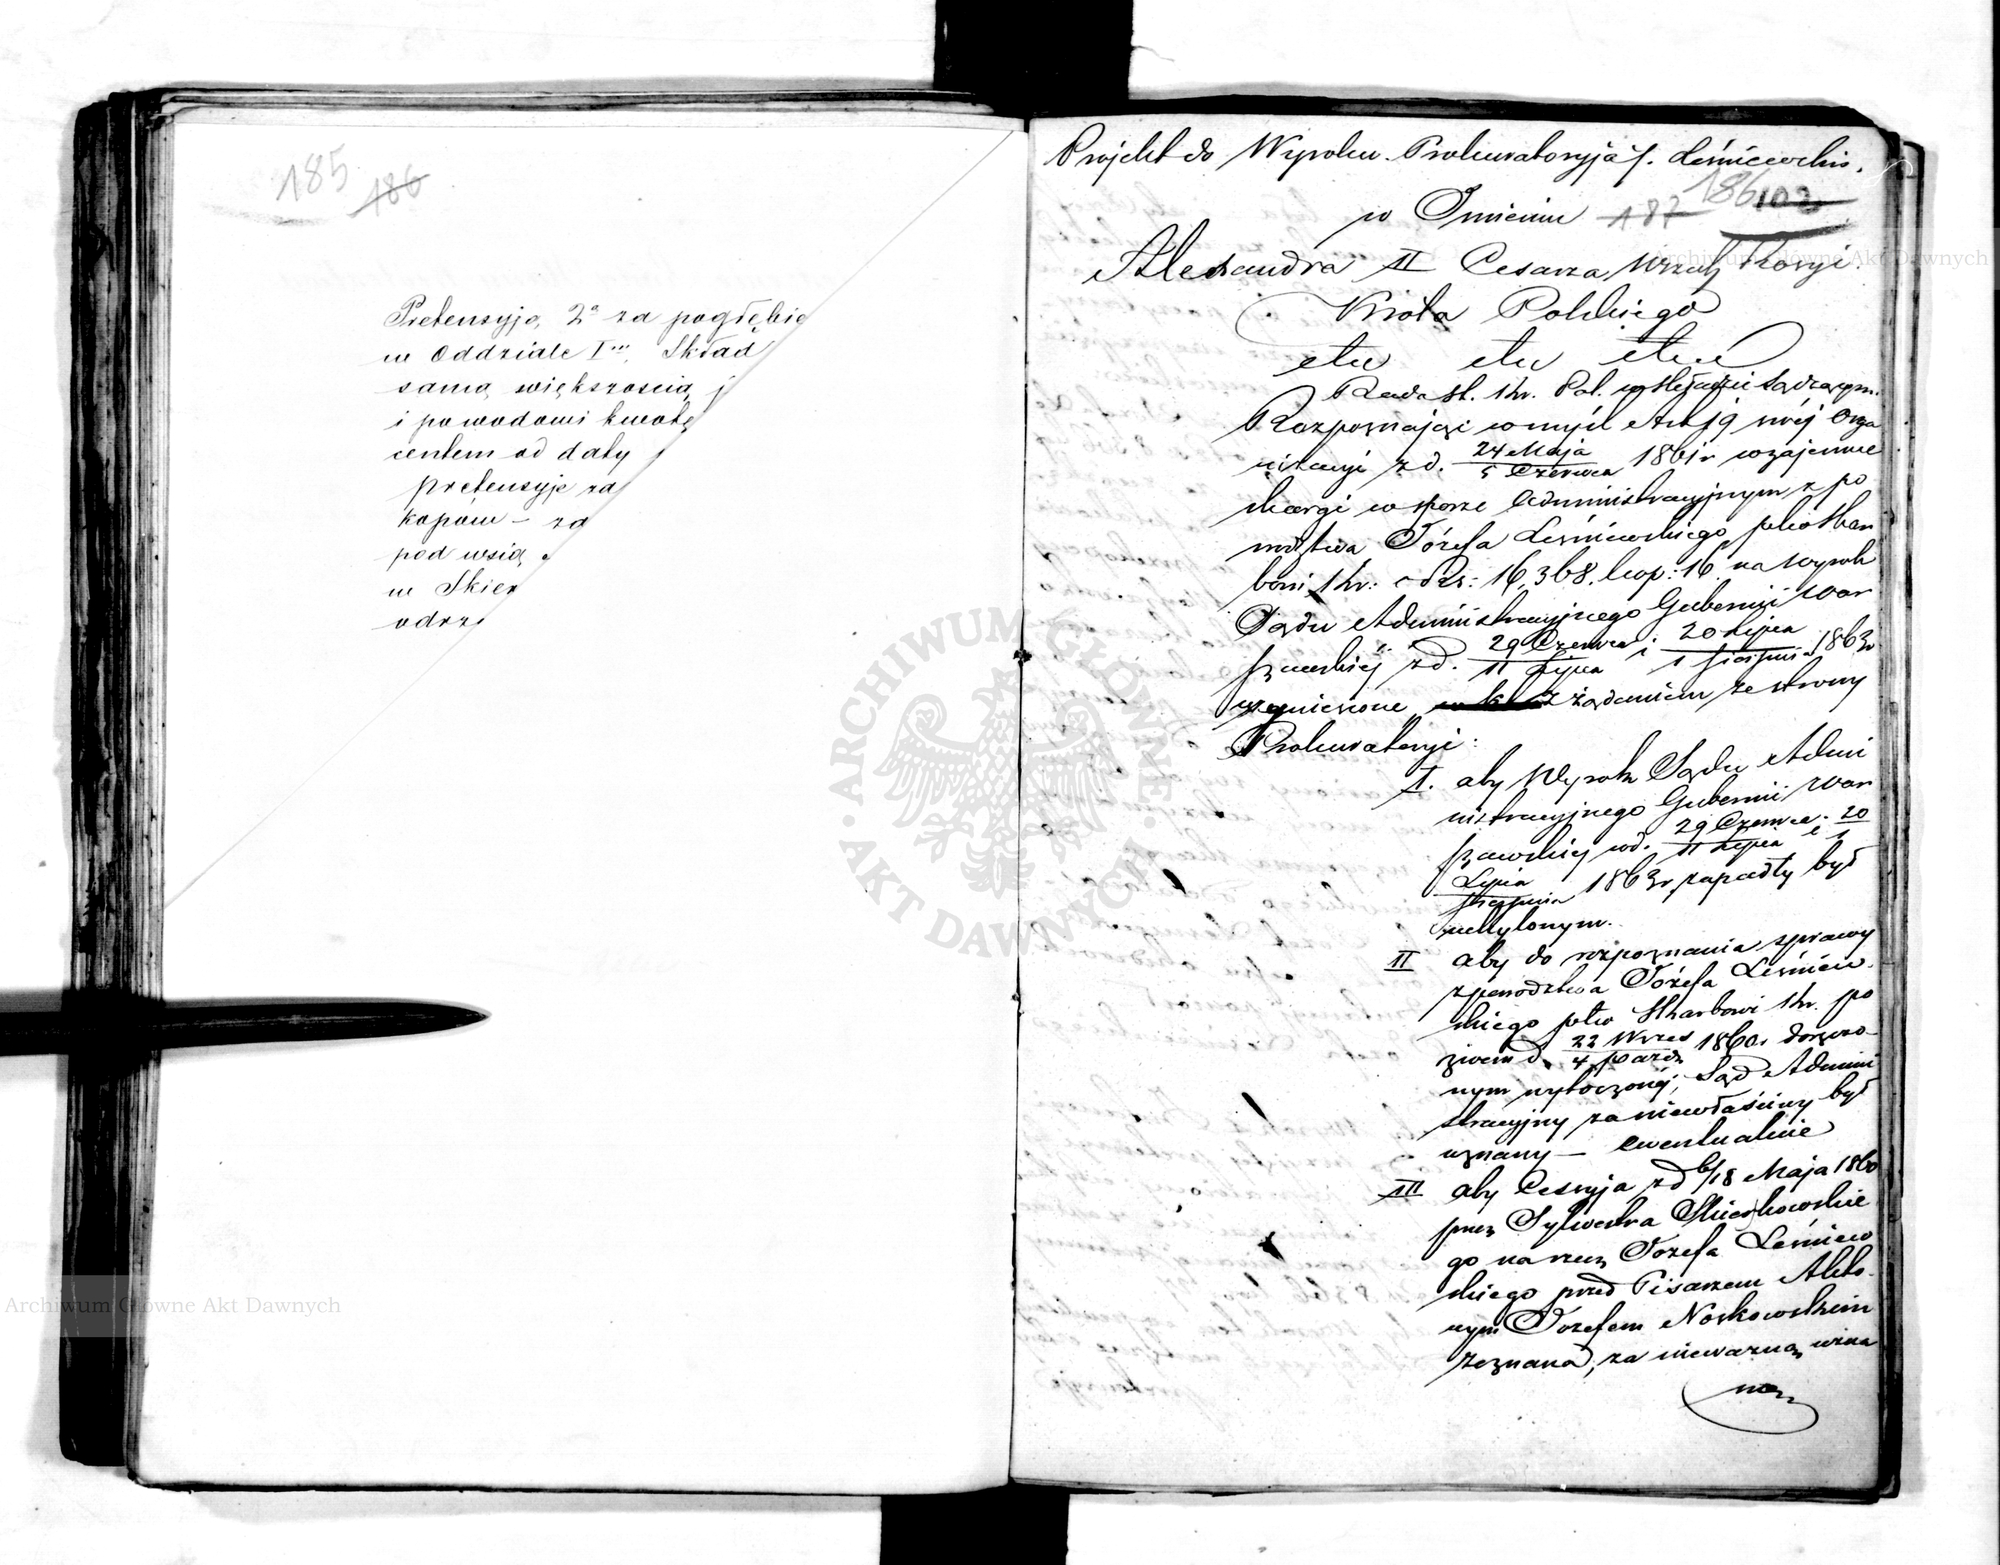 185
186
Pretensyję 2ª za pogłębie
w Oddziale I
samą większością j
i powodowi kwotę
centem od daty
pretensyje za
kopów – za
pod wsią
w Skier
odrz
Projekt do Wyroku. Prokuratoryja /. Leśniewskis.
w Imieniu
187
186
102
Alexandra II Cesarza Wszech Rossyi.
Króla Polskiego
etc etc etc
Rada St. Kr. Pol. w Składzie Sądzącym.
Rozpoznając w myśl Art 19 swéj Orga
nizacyi z d. 24 Maja / 5 Czerwca 1861 r wzajemne
skargi w sporze Administracyjnym z po
wództwa Józefa Leśniewskiego, pko Skar
bowi Kr: o Rs: 16,368. kop: 16. na wyrok
Sądu Administracyjnego Gubernii War
szawskiéj z d. 29 Czerwca / 11 Lipca i 20 Lipca / 1 Sierpnia 1863 r
wyniesione z żądaniem ze strony
Prokuratoryi:
I. aby Wyrok Sądu Admi
nistracyjnego Gubernii War
szawskiéj w d. 29 Czerwca / 11 Lipca i 20 / 1
Lipca / Sierpnia 1863 r zapadły był
uchylonym.
II aby do rozpoznania sprawy
z powództwa Józefa Leśniew
skiego pko Skarbowi Kr. po
zwem d. 22 Wrześ / 4 Paźdz 1860 r doręczo-
nym wytoczonéj, Sąd Admini
stracyjny za niewłaściwy był
uznany – ewentualnie
III aby Cessyja z d 6/18 Maja 1860
przez Sylwestra
go na rzecz Józefa Leśniew
skiego przed Pisarzem Akto-
wym Józefem Noskowskim
zeznana, za nieważną uzna
ną
ARCHIWUM GŁÓWNE
AKT DAWNYCH
Archiwum Główne Akt Dawnych
Archiwum Główne Akt Dawnych